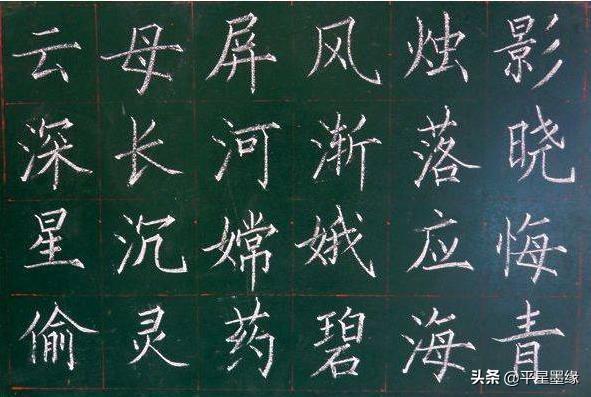 云母屏风烛影
深长河渐落晓
星沉嫦娥应悔
偷灵药碧海青
头条 @平星墨缘